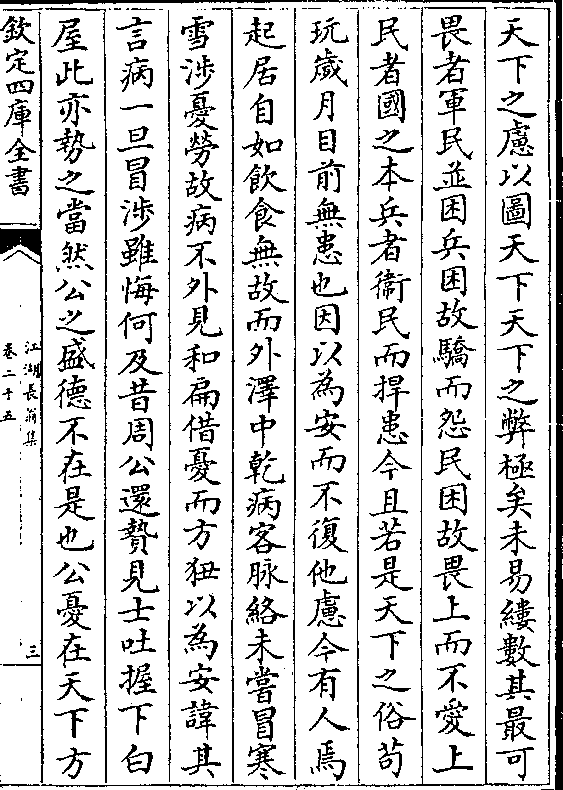 天下之慮以圖天下天下之弊極矣未易縷數其最可
畏者軍民並困兵困故驕而怨民困故畏上而不愛上
民者國之本兵者衞民而捍患今且若是天下之俗苟
玩歲月目前無患也因以為安而不復他慮今有人焉
起居自如飲食無故而外澤中乾病客脉絡未嘗冒寒
雪涉憂勞故病不外見和扁借憂而方狃以為安諱其
言病一旦冒涉雖悔何及昔周公還贄見士吐握下白
屋此亦勢之當然公之盛德不在是也公憂在天下方
欽定四庫全書
江湖長翁集
卷二十五
三